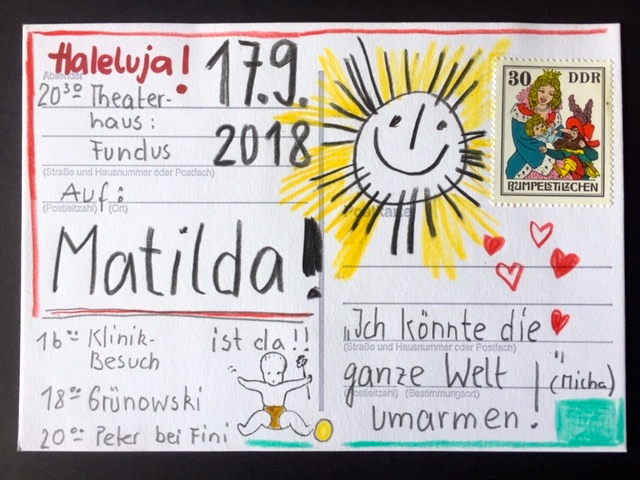 Haleluja!
17.9.
2018
Absender
20³⁰ Theater-
haus:
Fundus
(Straße und Hausnummer oder Postfach)
Auf:
(Postleitzahl) (Ort)
Matilda!
ist da!!
16⁰⁰ Klinik-
Besuch
18⁰⁰ Grünowski
20⁰⁰ Peter bei Fini
30 DDR
RUMPELSTILZCHEN
Postkarte
„Ich könnte die
(Straße und Hausnummer oder Postfach)
ganze Welt
(Postleitzahl) (Bestimmungsort)
umarmen!"
(Micha)